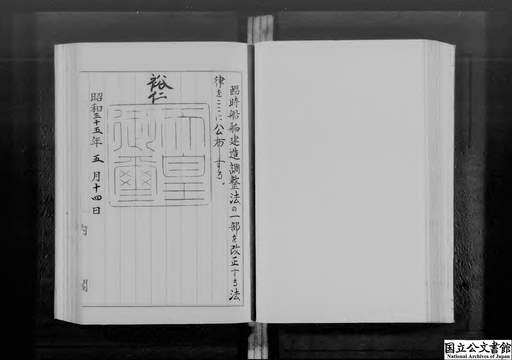 臨時船舶建造調整法の一部を改正する法
律をここに公布する。
裕仁
天皇
御璽
昭和三十五年五月十四日
内閣
国立公文書館
National Archives of Japan